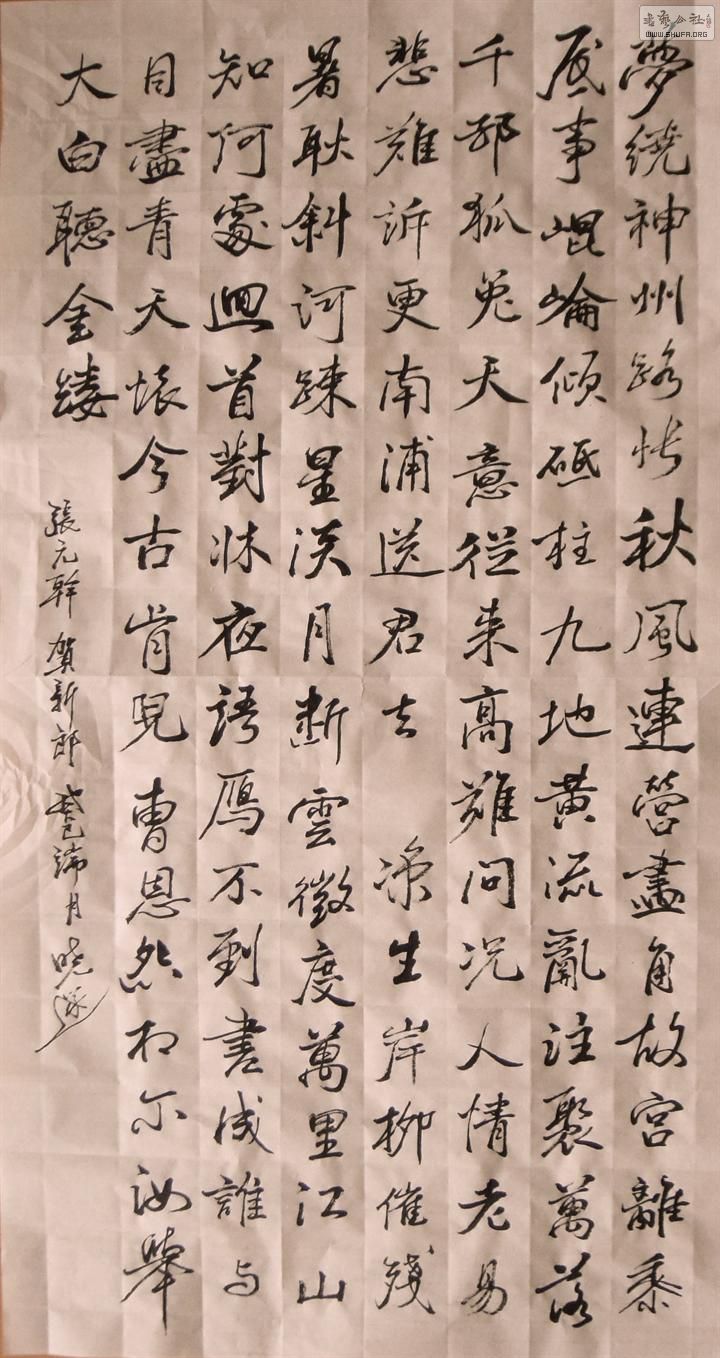 夢繞神州路悵秋風連營畫角故宮離黍
底事崐崘傾砥柱九地黃流亂注聚萬落
千邨狐兔天意從来高難問況人情老易
悲難訴更南浦送君去 涼生岸柳催殘
暑耿斜河踈星淡月斷雲微度萬里江山
知何處迴首對牀夜語鴈不到書成誰与
目盡青天懷今古肯兒曹恩怨相尔汝舉
大白聽金縷
張元幹 賀新郎 癸巳端月曉
書藝公社
WWW.SHUFA.ORG